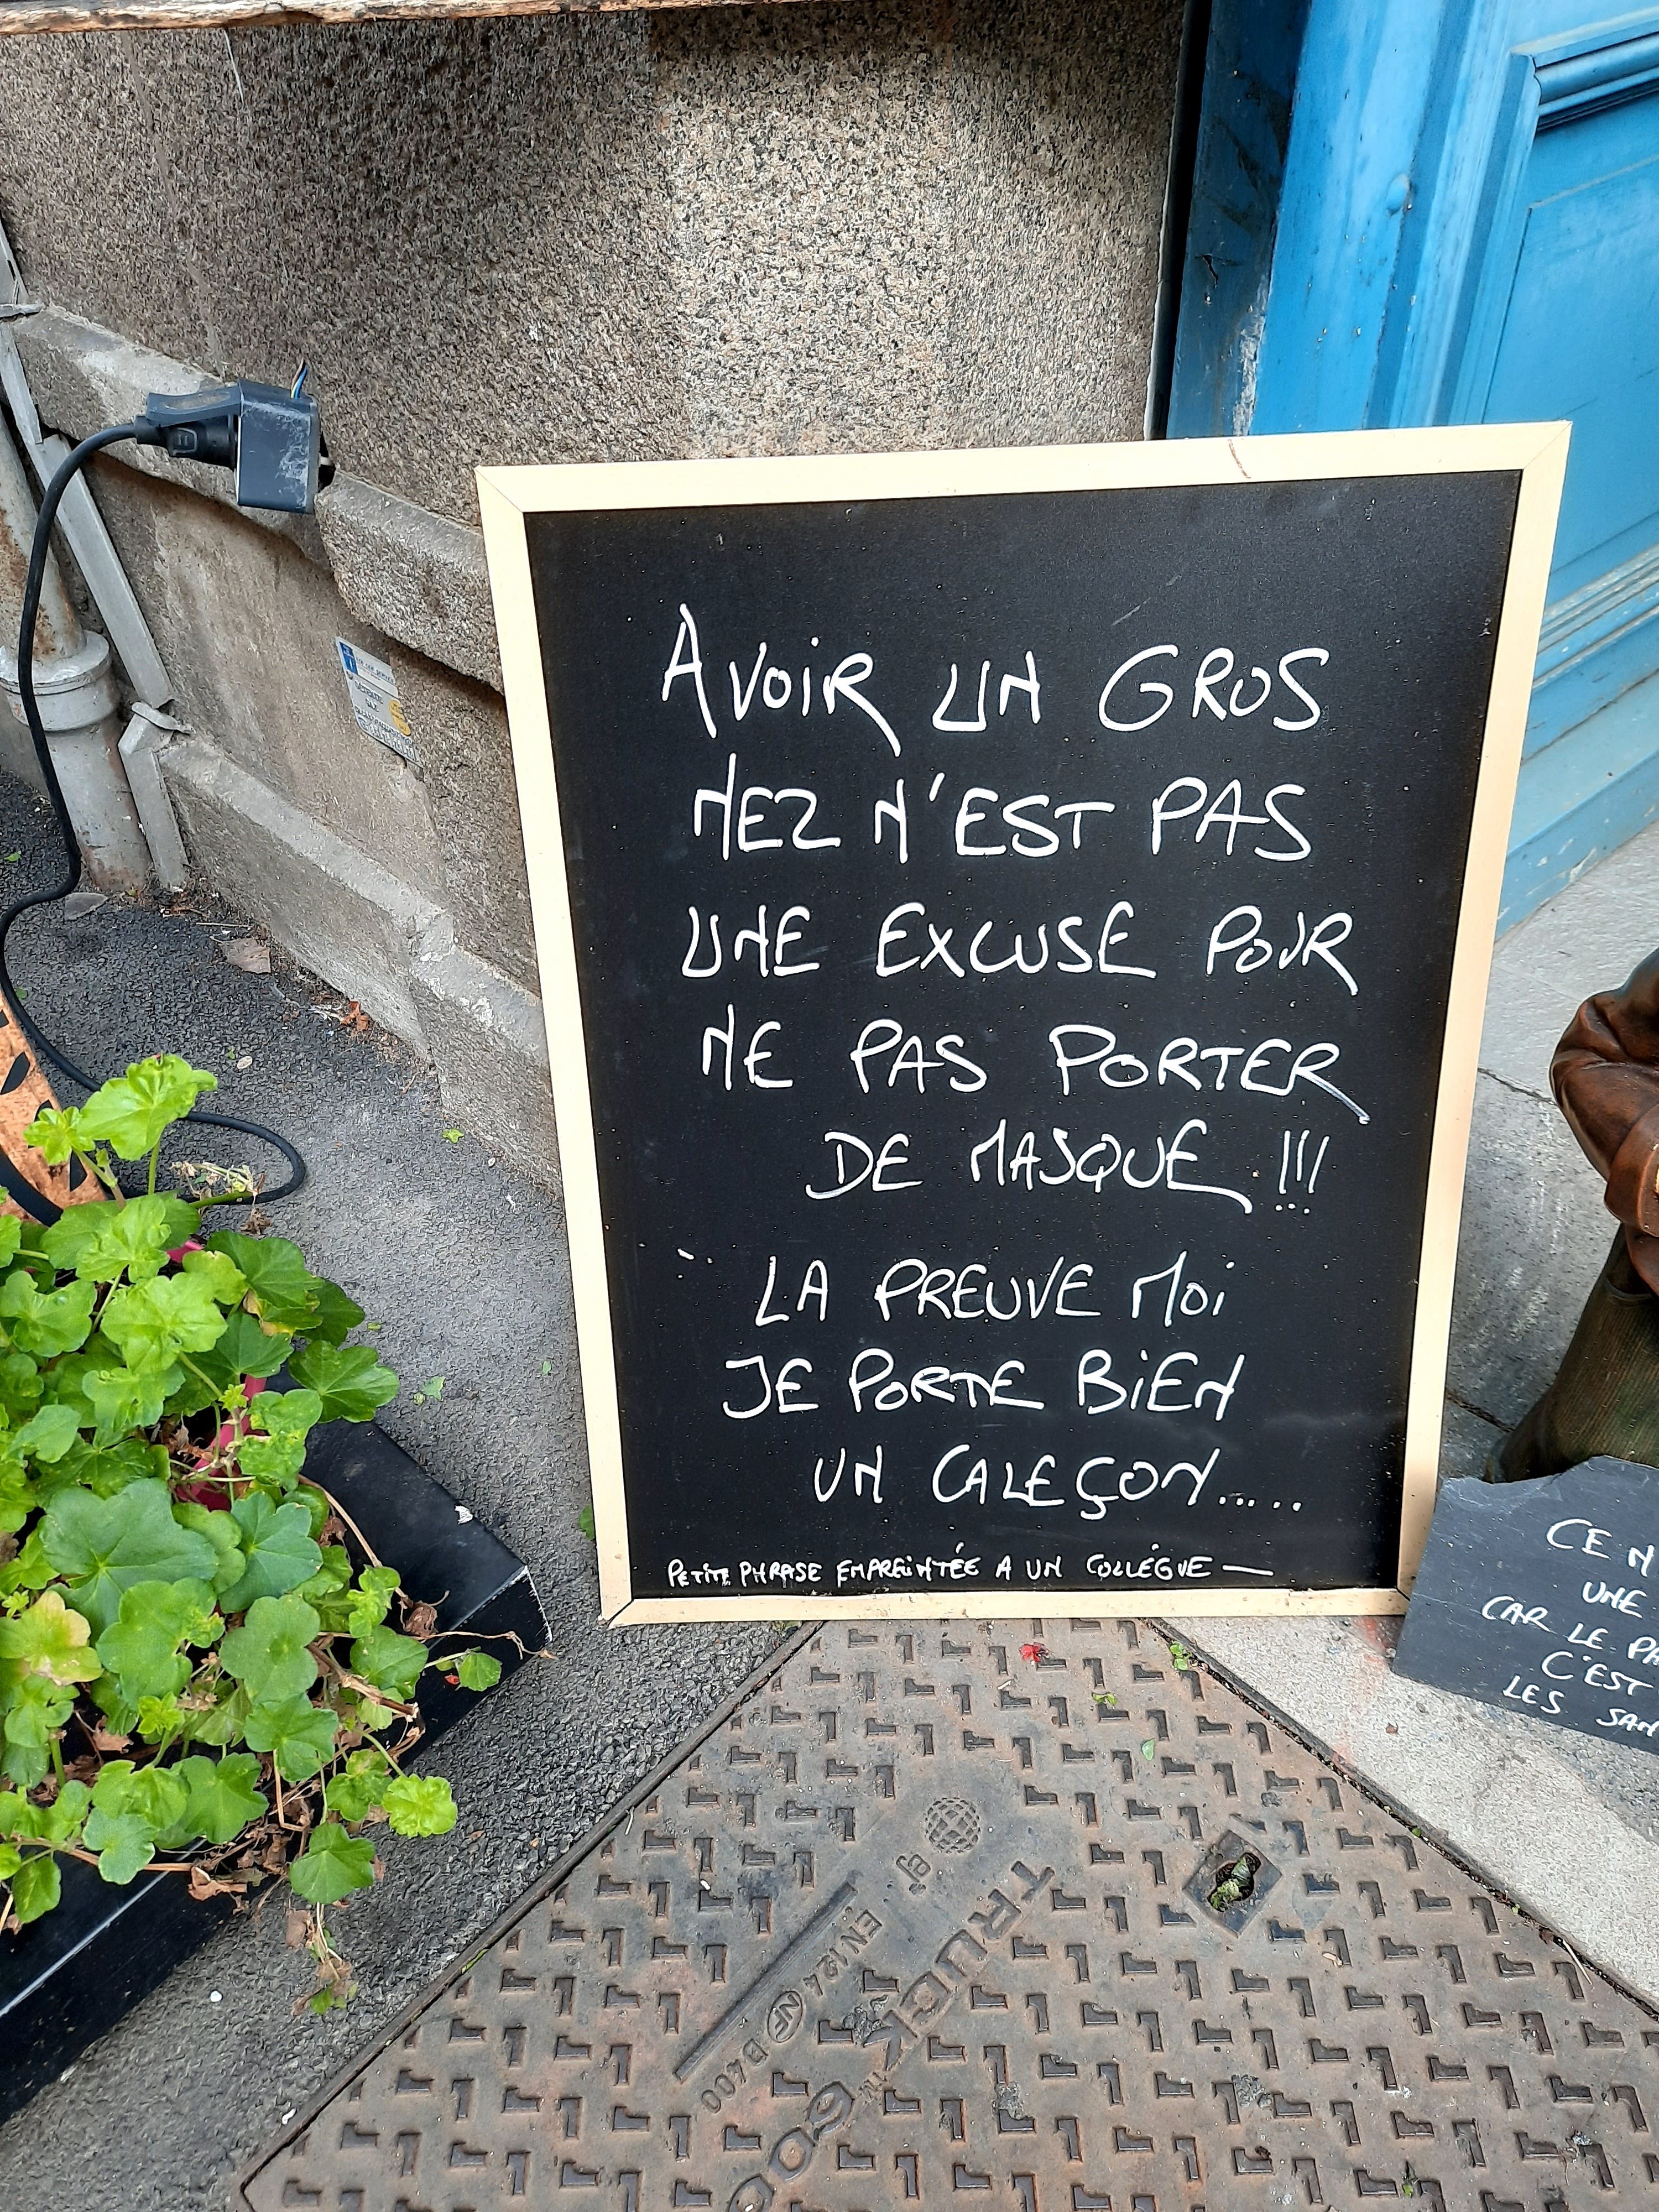 AVOIR UN GROS
NEZ N'EST PAS
UNE EXCUSE POUR
NE PAS PORTER
DE MASQUE !!!
LA PREUVE MOI
JE PORTE BIEN
UN CALEÇON.....
PETITE PHRASE EMPREINTÉE A UN COLLÉGUE —
CE N
UNE
CAR LE PA
C'EST
LES SAN
TRUCK
EN 124 NF B400